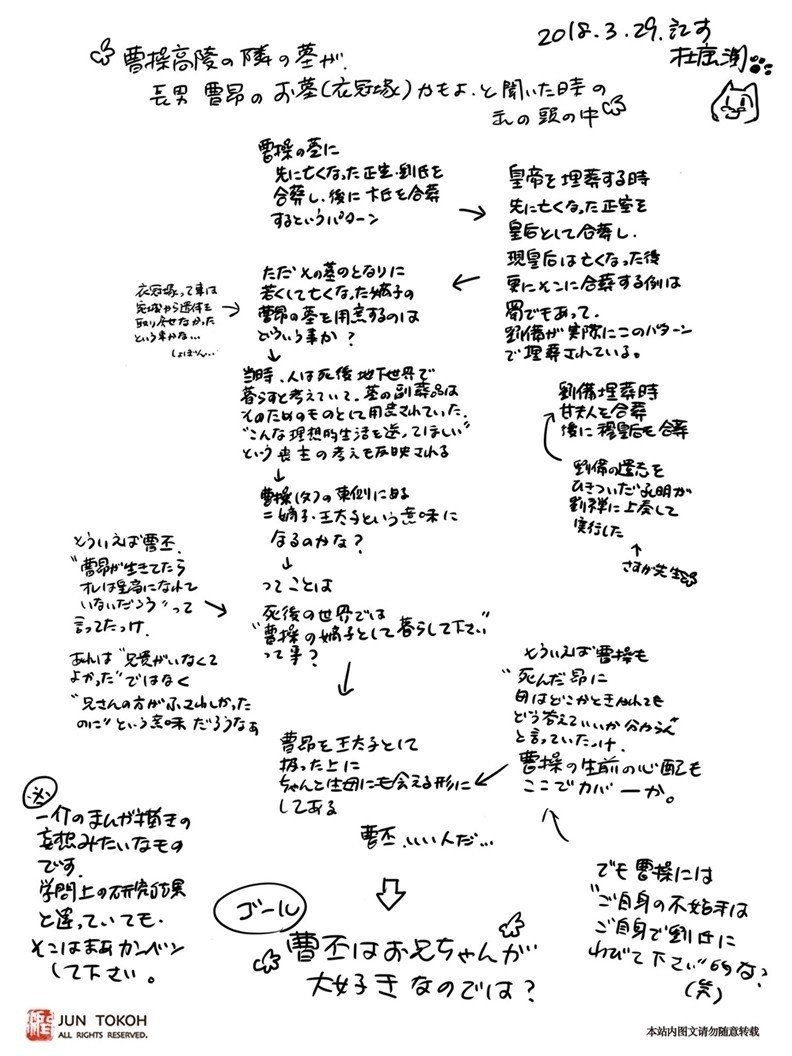 2018.3.29.記す
杜康潤
曹操高陵の隣の墓が、
長男 曹昂のお墓(衣冠塚)かもよ、と聞いた時の
私の頭の中
曹操の墓に
先に亡くなった正室・劉氏を
合葬し、後に卞氏を合葬
するというパターン
→
皇帝を埋葬する時
先に亡くなった正室を
皇后として合葬し、
現皇后は亡くなった後
更にそこに合葬する例は
蜀でもあって、
劉備が実際にこのパターン
で埋葬されている。
劉備埋葬時
甘夫人を合葬
後に穆皇后も合葬
劉備の遺志を
ひきついだ孔明が
劉禅に上奏して
実行した
↑
さすが先生
←
ただその墓のとなりに
若くして亡くなった嫡子の
曹昂の墓を用意するのは
どういう事か?
衣冠塚って事は
宛城から遺体を
取り戻せなかった
という事かな…
しょぼん…
→
↓
当時、人は死後地下世界で
暮らすと考えていて、墓の副葬品は
そのためのものとして用意されていた。
"こんな理想的生活を送ってほしい"
という喪主の考えも反映される
↓
曹操(父)の東側にある
=嫡子・王太子という意味に
なるのかな?
↓
ってことは
死後の世界では
"曹操の嫡子として暮らして下さい"
って事?
そういえば曹丕、
"曹昂が生きてたら
オレは皇帝になれて
いないだろう"って
言ってたっけ。
→
あれは"兄貴がいなくて
よかった"ではなく
"兄さんの方がふさわしかった
のに"という意味だろうなぁ
↓
曹昂を王太子として
扱った上に
ちゃんと生母にも会える形に
してある
そういえば曹操も
"死んだ昂に
母はどこかときかれても
どう答えていいか分からん"
と言っていたっけ。
曹操の生前の心配も
ここでカバーか。
←
でも曹操には
"ご自身の不始末は
ご自身で劉氏に
わびて下さい"かな?
(笑)
曹丕、いい人だ…
ゴール
曹丕はお兄ちゃんが
大好きなのでは?
※
一介のまんが描きの
妄想みたいなもの
です。
学問上の研究結果
と違っていても、
そこはまあカンベン
して下さい。
JUN TOKOH
ALL RIGHTS RESERVED.
本站内图文请勿随意转载